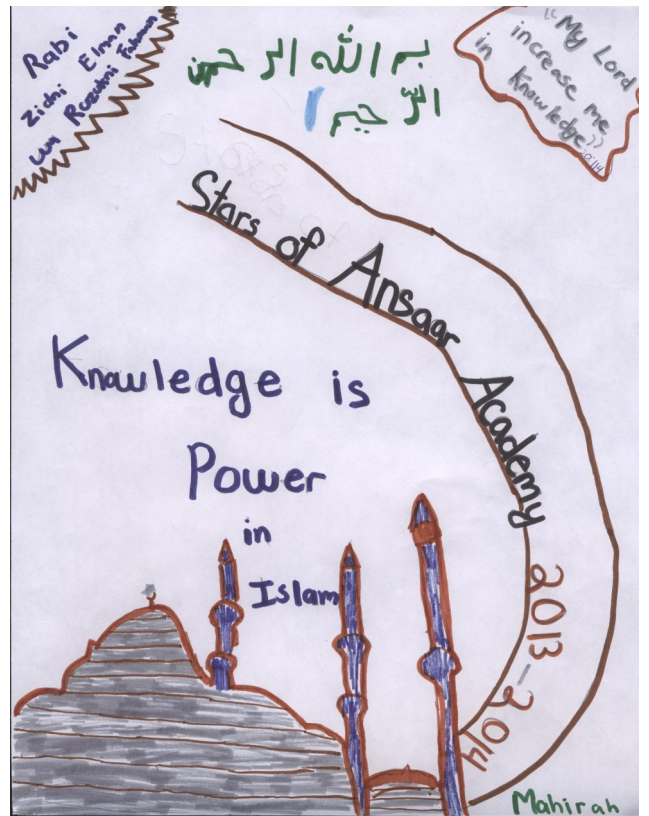 Rabi
Zidni Elman
wa
بسم الله الرحمن
الرّحيم
"My Lord
increase me
in Knowledge"
Stars of Ansaar Academy 2013-2014
Knowledge is
Power
in
Islam
Mahirah